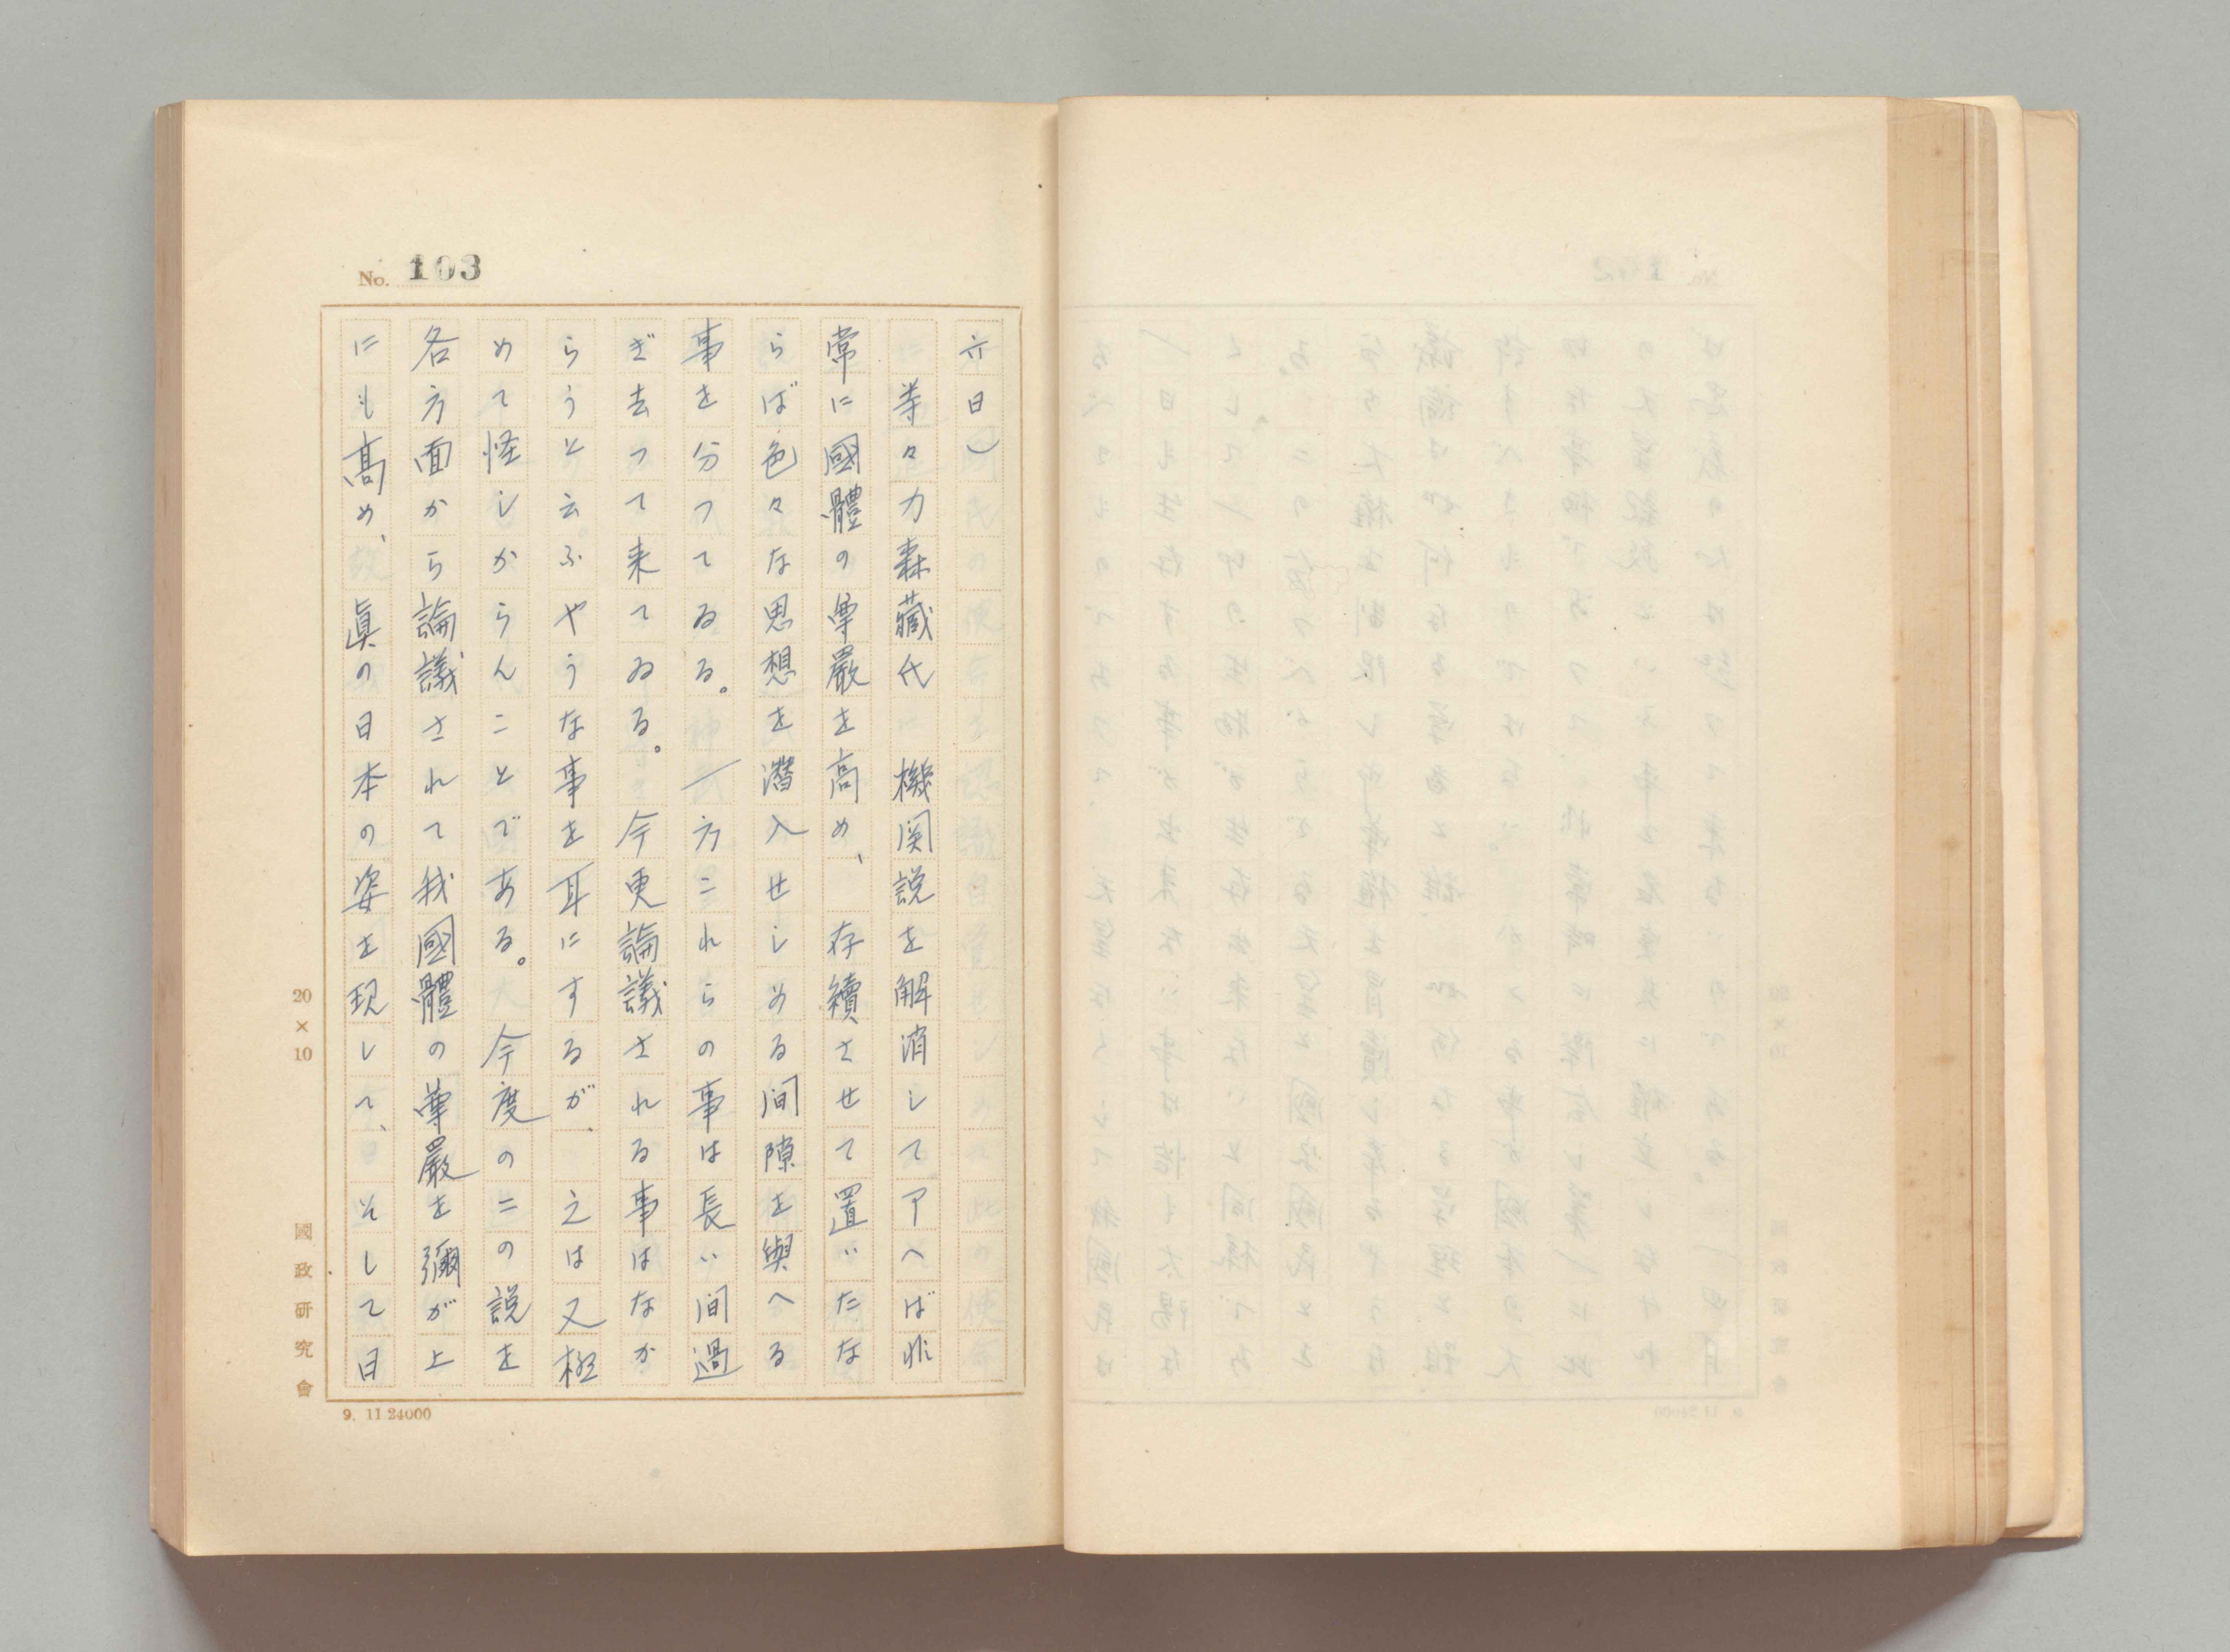 No. 103
六日)
等々力森藏氏　機関説を解消してアヘば非
常に國體の尊嚴を高め、存續させて置いたな
らば色々な思想を潜入せしめる间隙を與へる
事を分つてゐる。一方これらの事は長い间過
ぎ去つて来てゐる。今更論議される事はなか
らうと云ふやうな事を耳にするが、之は又極
めて怪しからんことである。今度の二の説を
各方面から論議されて我國體の尊嚴を彌が上
にも髙め、眞の日本の姿を現して、そして日
20×10
國政研究會
9. 11 24000